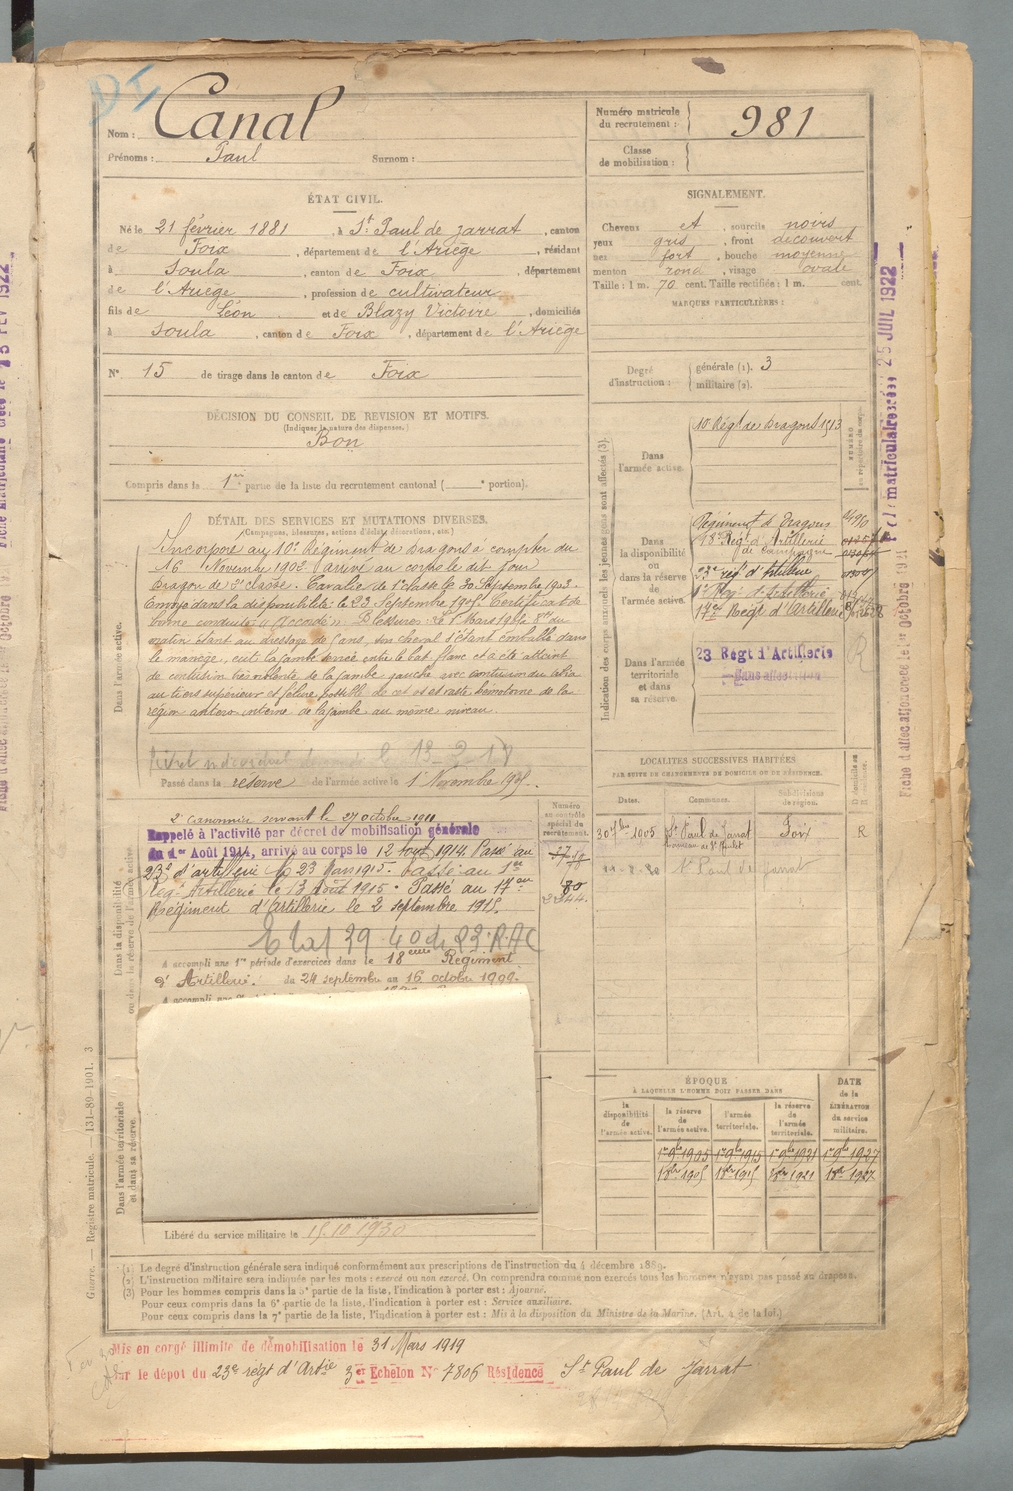 D I
Nom : Canal
Prénoms : Paul Surnom :
Numéro matricule du recrutement : 981
Classe de mobilisation :
ÉTAT CIVIL.
Né le 21 février 1881, à St Paul de Jarrat, canton
de Foix, département de l'Ariège, résidant
à Soula, canton de Foix, département
de l'Ariège, profession de cultivateur
fils de Léon et de Blazy Victoire, domiciliés
à Soula, canton de Foix, département de l'Ariège
N° 15 de tirage dans le canton de Foix
SIGNALEMENT.
Cheveux et, sourcils noirs
yeux gris, front découvert
nez fort, bouche moyenne
menton rond, visage ovale
Taille : 1 m. 70 cent. Taille rectifiée : 1 m. cent.
MARQUES PARTICULIÈRES :
Degré d'instruction :
générale (1). 3
militaire (2).
DÉCISION DU CONSEIL DE REVISION ET MOTIFS.
(Indiquer la nature des dispenses.)
Bon
Compris dans la 1re partie de la liste du recrutement cantonal ( e portion).
DÉTAIL DES SERVICES ET MUTATIONS DIVERSES.
(Campagnes, blessures, actions d'éclat, décorations, etc.)
Dans l'armée active.
Incorporé au 10e Régiment de Dragons à compter du
16 Novembre 1902. Arrivé au corps le dit jour
Dragon de 2e classe. Cavalier de 1e classe le 30 Septembre 1903.
Envoyé dans la disponibilité le 23 Septembre 1905. Certificat de
bonne conduite "Accordé". Blessure : Le 8 Mars 1904 à 8h du
matin étant au dressage de 5 ans, son cheval s'étant emballé dans
le manège, eut la jambe serrée entre le bat flanc et a été atteint
de contusion très violente de la jambe gauche avec contusion du tibia
au tiers supérieur et fêlure possible de cet os et vaste hématome de la
région antéro interne de la jambe au même niveau.
Passé dans la réserve de l'armée active le 1 Novembre 1905.
Dans la disponibilité ou dans la réserve de l'armée active.
2e canonnier servant le 27 octobre 1911
Rappelé à l'activité par décret de mobilisation générale
du 1er Août 1914, arrivé au corps le 12 Août 1914. Passé au
23e d'artillerie le 23 Mars 1915. Passé au 1er
Reg. Artillerie le 13 Août 1915. Passé au 17eme
Régiment d'Artillerie le 2 septembre 1915.
Etat 39-40 du 23 R.A.C
A accompli une 1re période d'exercices dans le 18eme Régiment
d'Artillerie. du 24 septembre au 16 octobre 1909.
Numéro au contrôle spécial du recrutement.
80
2344.
Indication des corps auxquels les jeunes gens sont affectés (3).
Dans l'armée active.
10 Régt de Dragons 1513
NUMÉRO au répertoire du corps.
Dans la disponibilité ou dans la réserve de l'armée active.
Régiment d Dragons
18e Régt d'Artillerie de campagne
23e régt d'Artillerie
1er Regt d'artillerie
17e Régt d'Artillerie
Dans l'armée territoriale et dans sa réserve.
23 Régt d'Artillerie
Sans affectation
R
LOCALITÉS SUCCESSIVES HABITÉES
PAR SUITE DE CHANGEMENTS DE DOMICILE OU DE RÉSIDENCE.
Dates. Communes. Subdivisions de région. D domicile ou R résidence.
30 7bre 1905 St Paul de Jarrat Foix R
St Paul de Jarrat
ÉPOQUE
À LAQUELLE L'HOMME DOIT PASSER DANS
la disponibilité de l'armée active.
la réserve de l'armée active.
l'armée territoriale.
la réserve de l'armée territoriale.
DATE de la LIBÉRATION du service militaire.
1er 9bre 1905 1er 9bre 1915 1er 9bre 1921 1er 9bre 1927
1905 1915 1921 1927
Dans l'armée territoriale et dans sa réserve.
Libéré du service militaire le 15.10.1930
(1) Le degré d'instruction générale sera indiqué conformément aux prescriptions de l'instruction du 4 décembre 1889.
(2) L'instruction militaire sera indiquée par les mots : exercé ou non exercé. On comprendra comme non exercés tous les hommes n'ayant pas passé au drapeau.
(3) Pour les hommes compris dans la 5e partie de la liste, l'indication à porter est : Ajourné.
Pour ceux compris dans la 6e partie de la liste, l'indication à porter est : Service auxiliaire.
Pour ceux compris dans la 7e partie de la liste, l'indication à porter est : Mis à la disposition du Ministre de la Marine. (Art. 4 de la loi.)
Mis en congé illimité de démobilisation le 31 Mars 1919
Par le dépôt du 23e régt d'Artie 3er Echelon N° 7806 Résidence St Paul de Jarrat
Guerre. — Registre matricule. — 131-89-1901. 3
Fiche d'affectation créée le 1er Octobre 1921
matriculaire créée 25 JUIL 1922